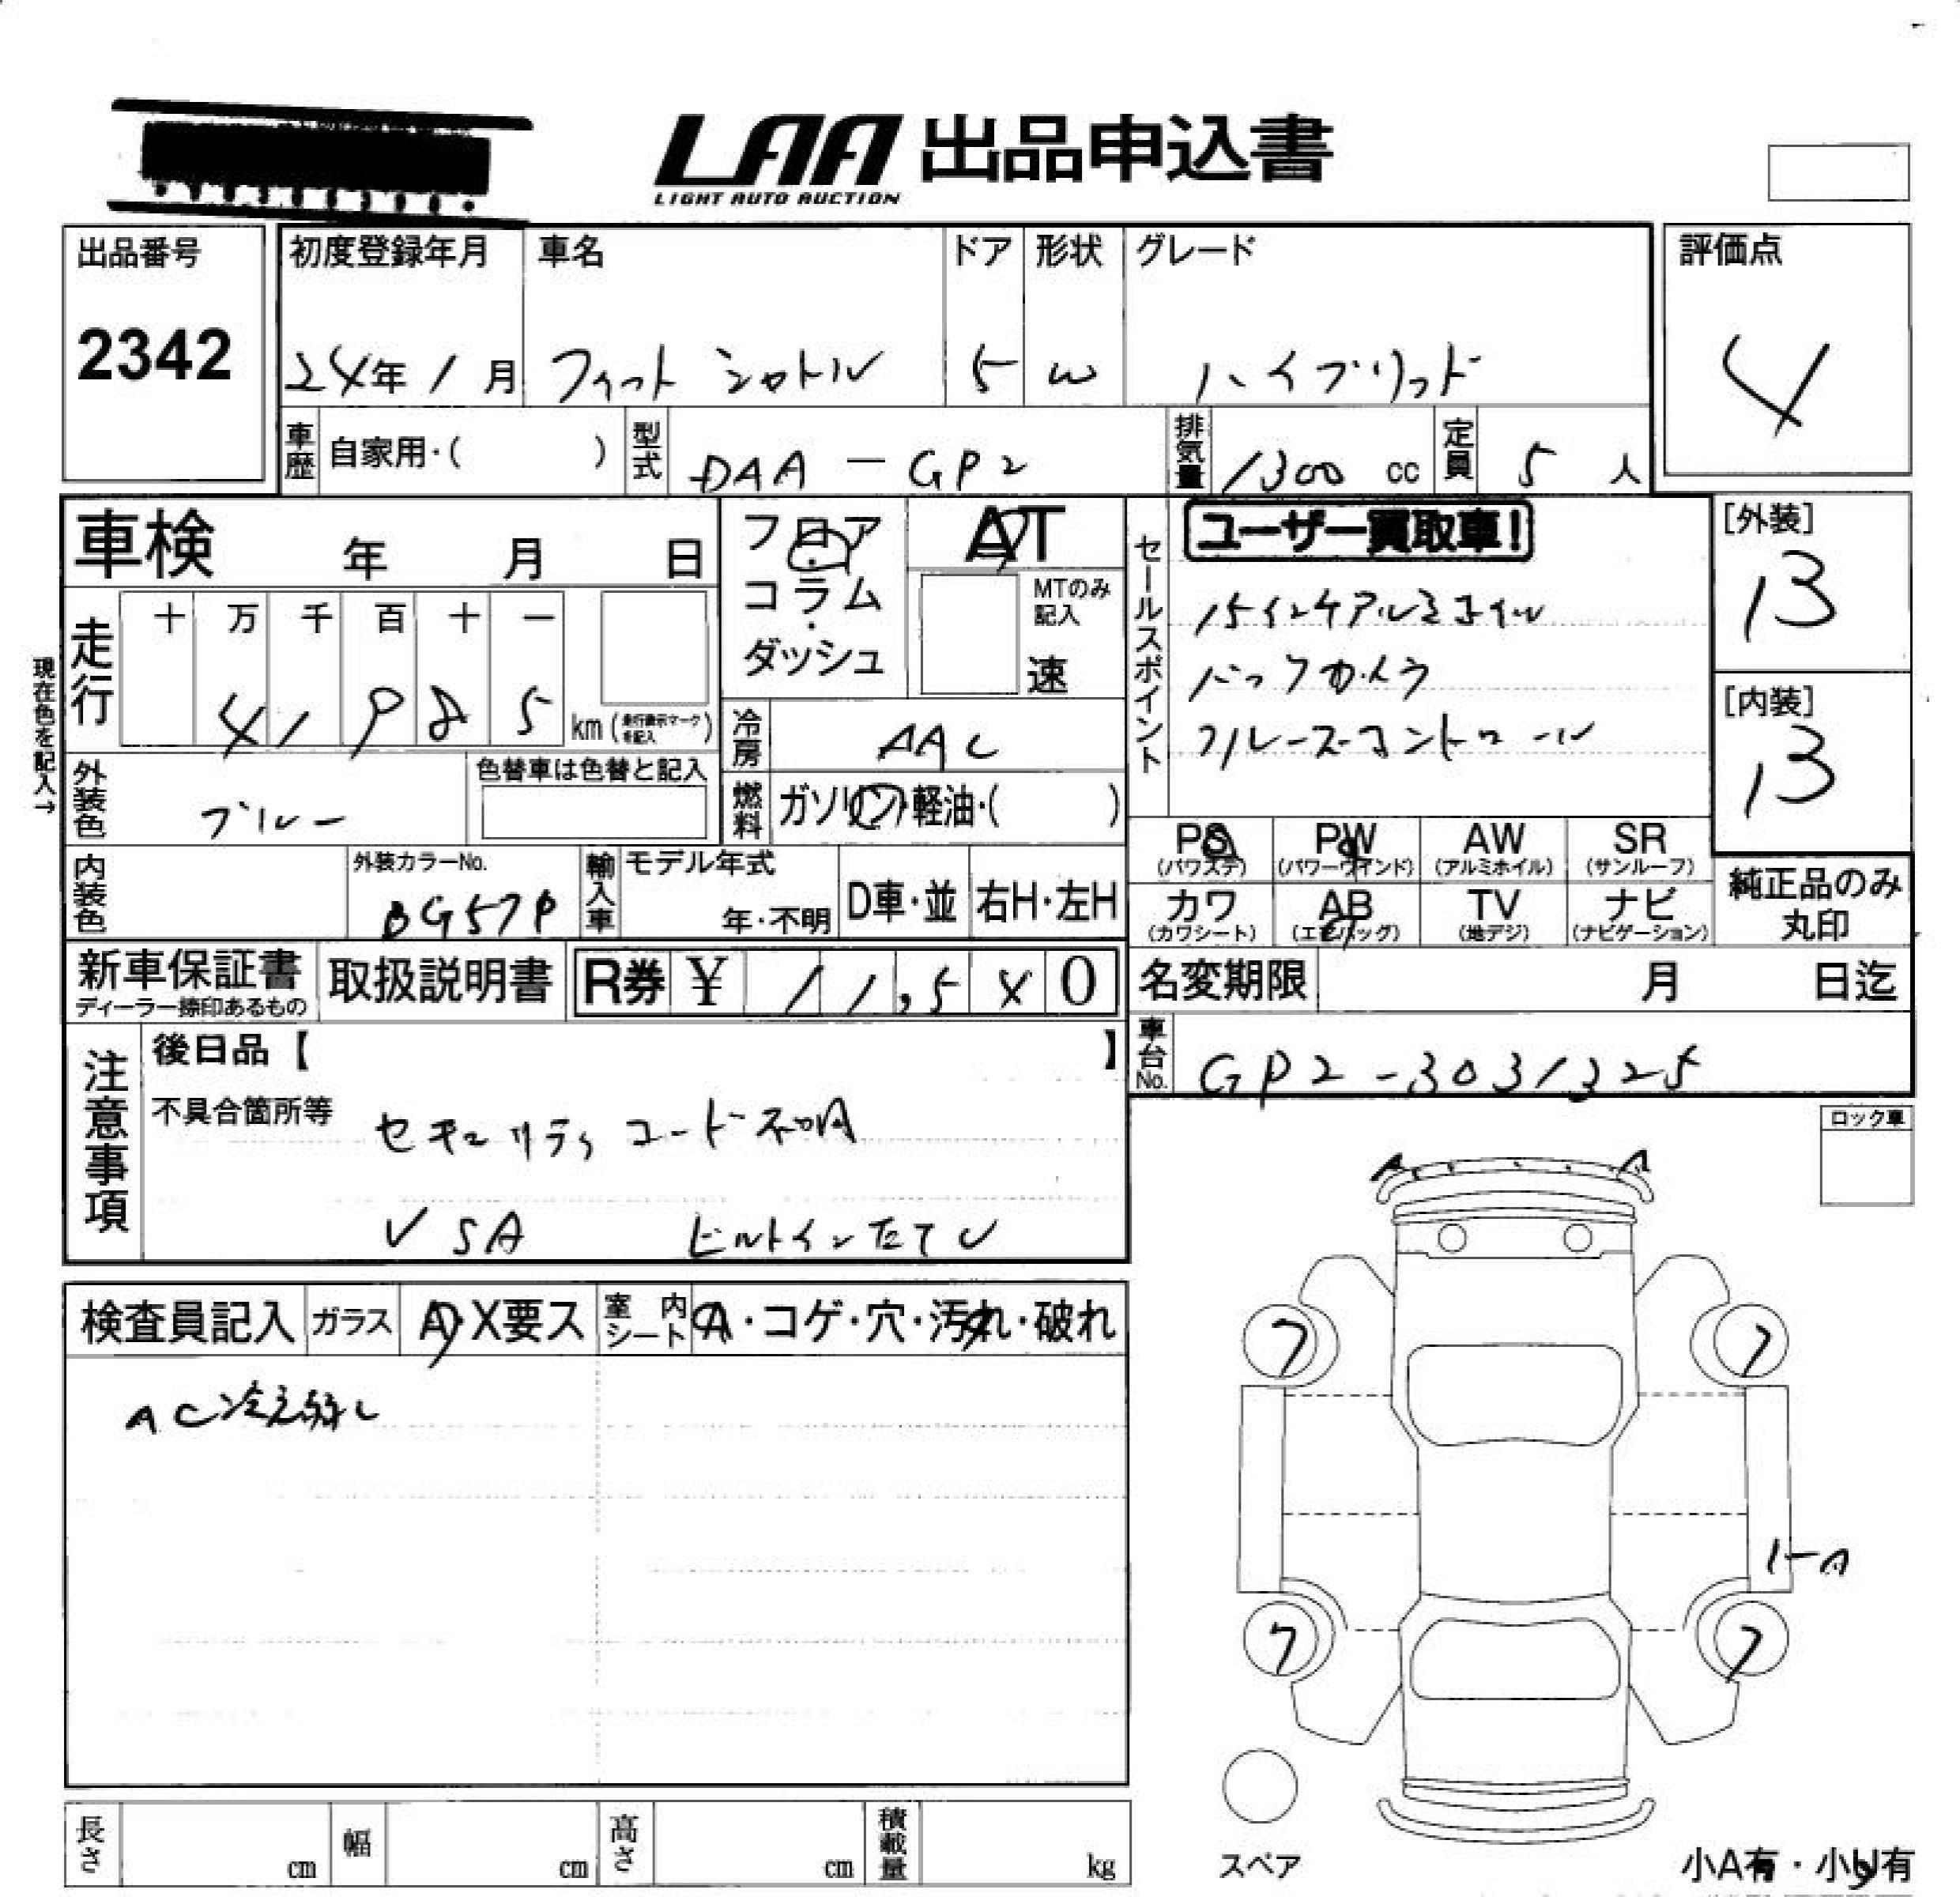 LAA 出品申込書
LIGHT AUTO AUCTION
出品番号 初度登録年月 車名 ドア 形状 グレード 評価点
2342 24年 1月 フィット シャトル 5 W ハイブリッド 4
車歴 自家用・( ) 型式 DAA-GP2 排気量 1300 cc 定員 5 人
車検 年 月 日 フロア・コラム・ダッシュ AT セールスポイント ユーザー買取車! [外装]
13
MTのみ記入 速
15インチアルミホイル
バックカメラ
クルーズコントロール
[内装]
13
現在色を記入→
走行 十 万 千 百 十 一
4 1 9 8 5 km (走行表示マークを記入)
冷房 AAC
外装色 ブルー 色替車は色替と記入 燃料 ガソリン・軽油・( )
PS (パワステ) PW (パワーウインド) AW (アルミホイル) SR (サンルーフ)
内装色 外装カラーNo. BG57P 輸入車 モデル年式 年・不明 D車・並 右H・左H
カワ (カワシート) AB (エアバッグ) TV (地デジ) ナビ (ナビゲーション) 純正品のみ丸印
新車保証書 ディーラー捺印あるもの 取扱説明書 R券 ¥ 1 1,5 x 0 名変期限 月 日迄
車台No. GP2-3031325
注意事項 後日品【 】
不具合箇所等 セキュリティコード不明
VSA ビルトインETC
ロック車
A A
検査員記入 ガラス A・X要ス 室内シート A・コゲ・穴・汚れ・破れ
AC冷え弱し
7 7
1-A
7 7
スペア
小A有・小U有
長さ cm 幅 cm 高さ cm 積載量 kg